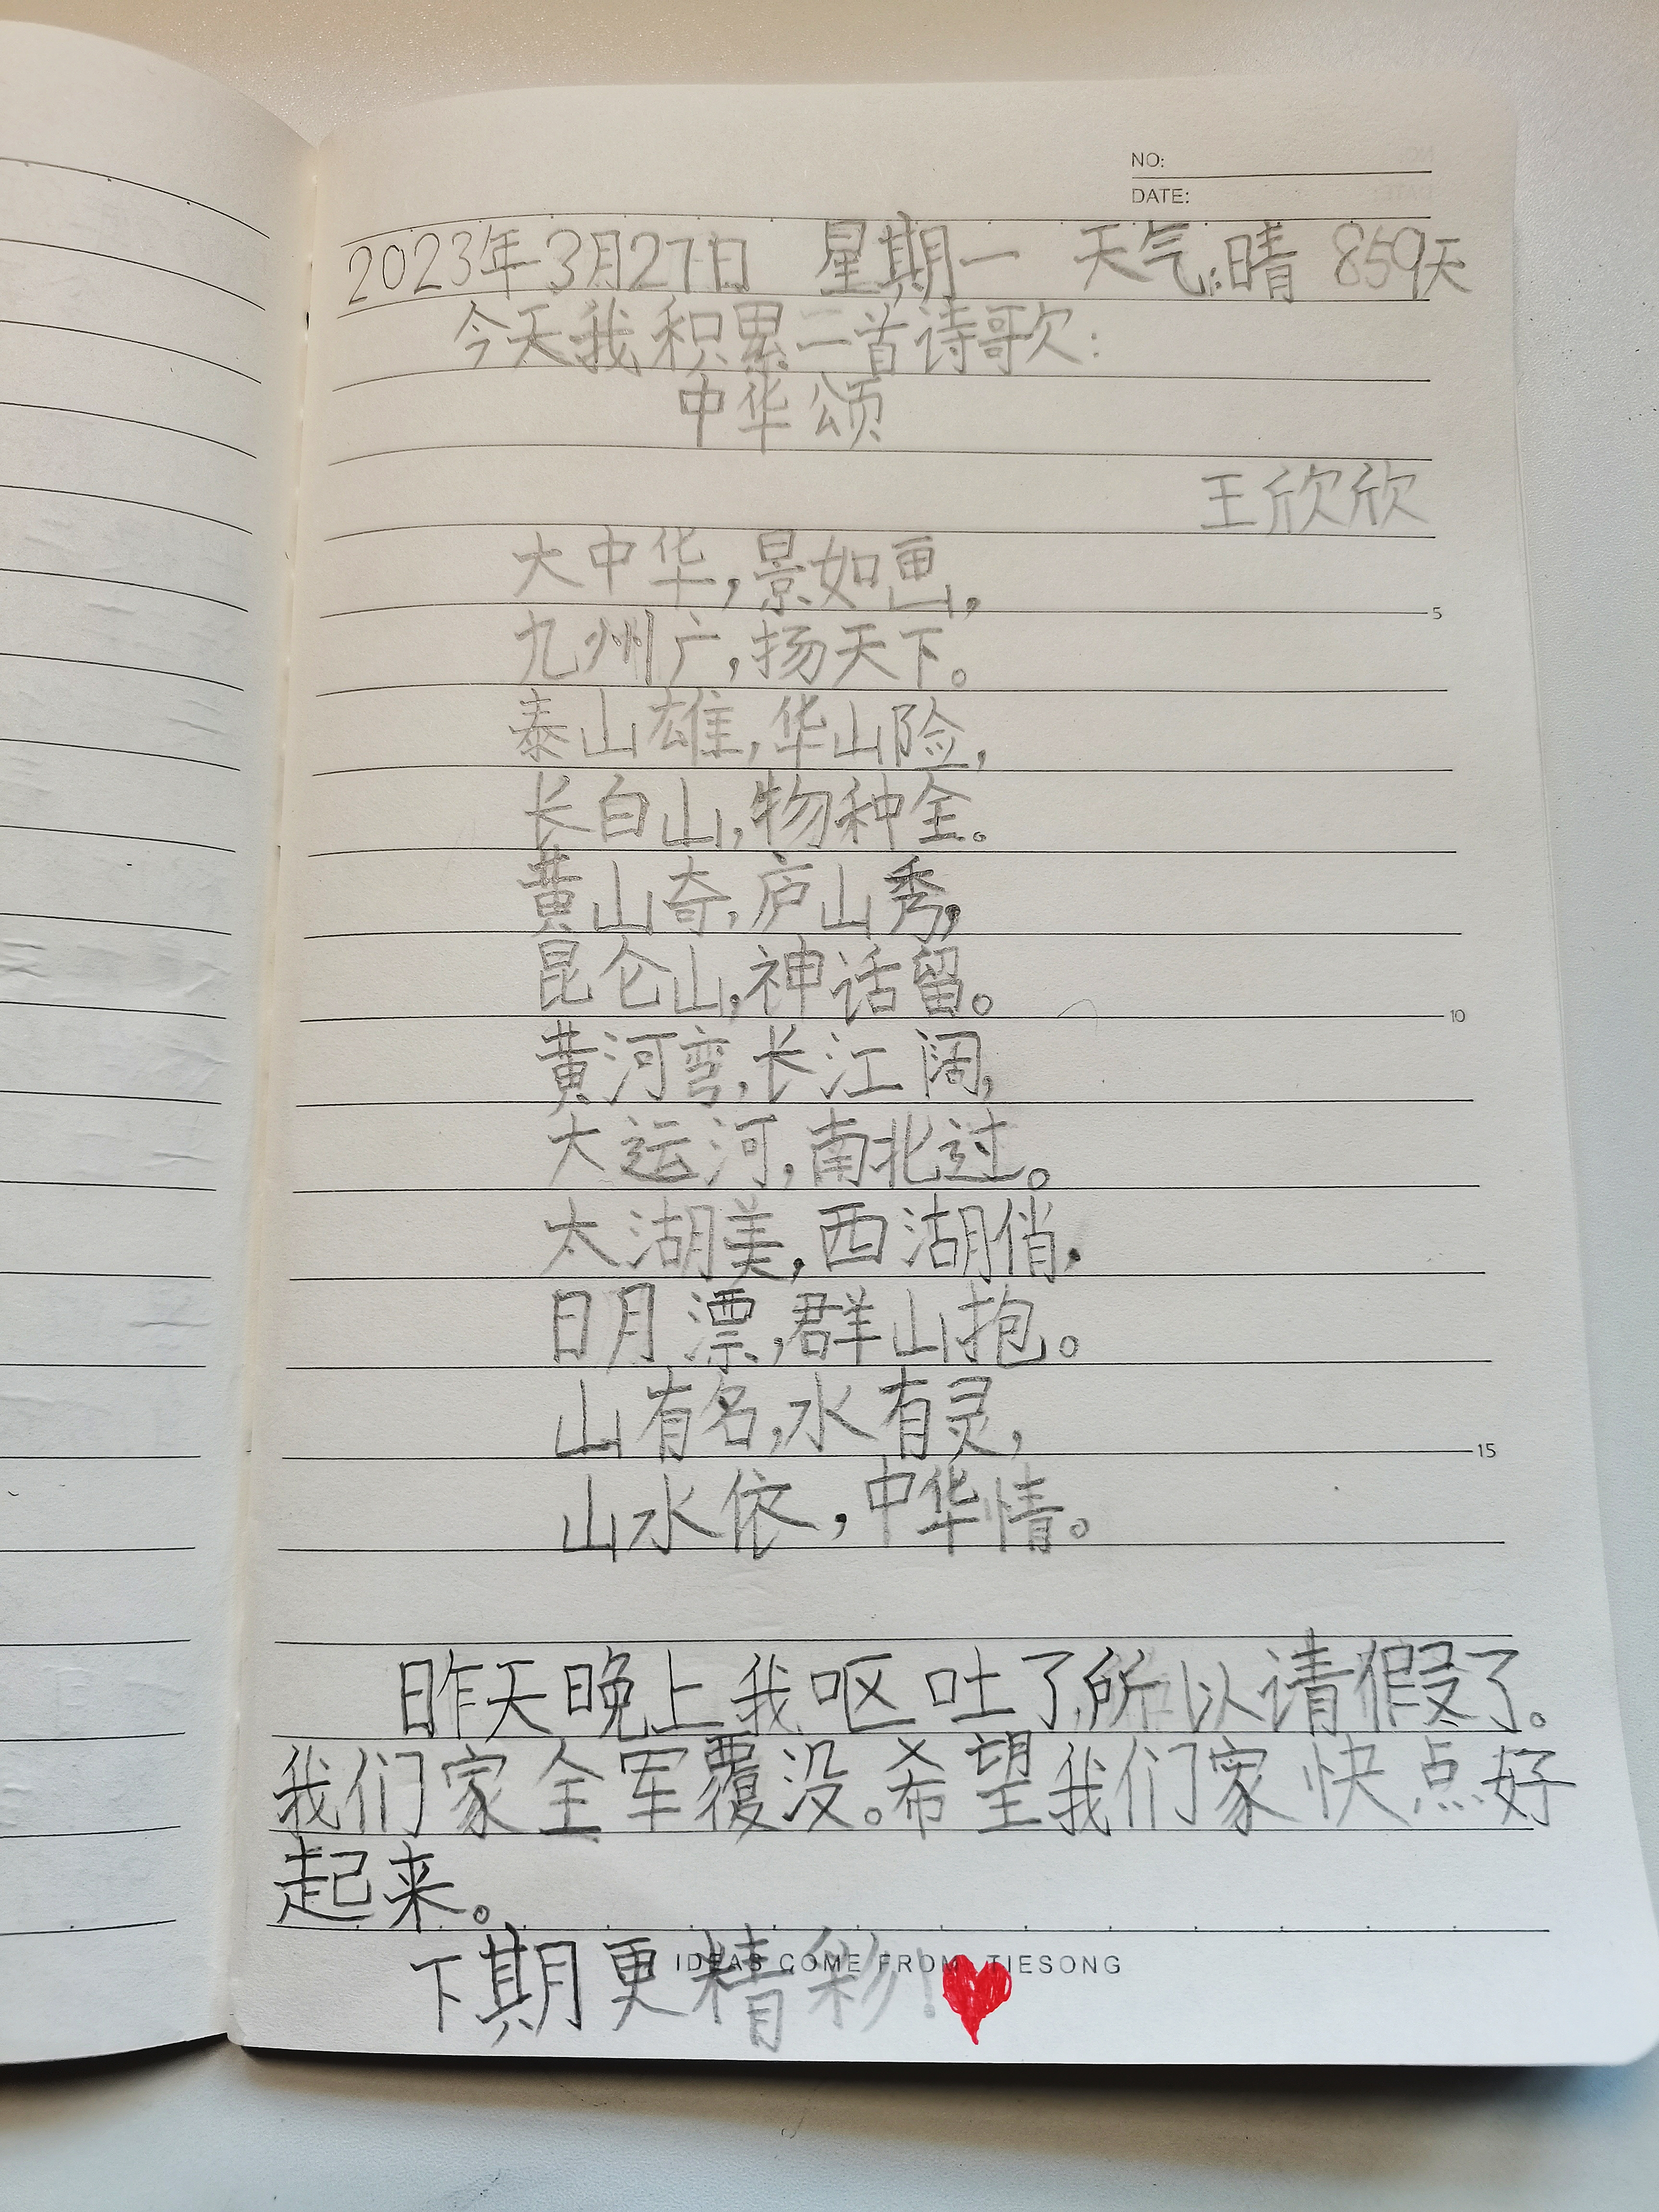 NO:
DATE:
2023年3月27日 星期一 天气:晴 859天
今天我积累二首诗歌:
中华颂
王欣欣
大中华,景如画,
九州广,扬天下。
泰山雄,华山险,
长白山,物种全。
黄山奇,庐山秀,
5
昆仑山,神话留。
10
黄河弯,长江阔,
大运河,南北过。
太湖美,西湖俏,
日月漂,群山抱。
山有名,水有灵,
15
山水依,中华情。
昨天晚上我呕吐了,所以请假了。
我们家全军覆没。希望我们家快点好
起来。
下期更精彩!
IDEAS COME FROM TIESONG